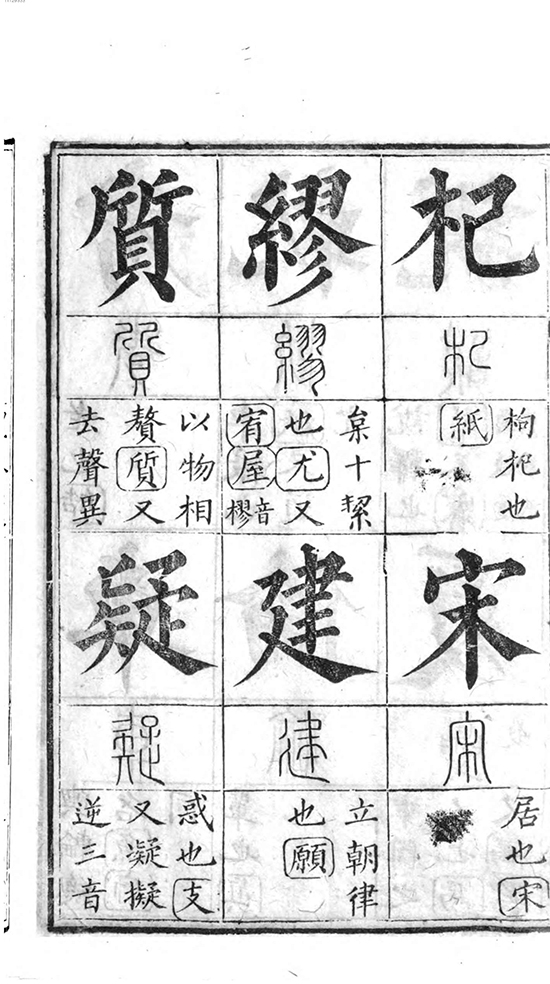 杞
杞
枸杞也
紙
宋
宋
居也宋
繆
繆
枲十絜
也尤又
宥屋音樛
建
建
立朝律
也願
質
質
以物相
贅質又
去聲異
疑
疑
惑也支
又凝擬
逆三音